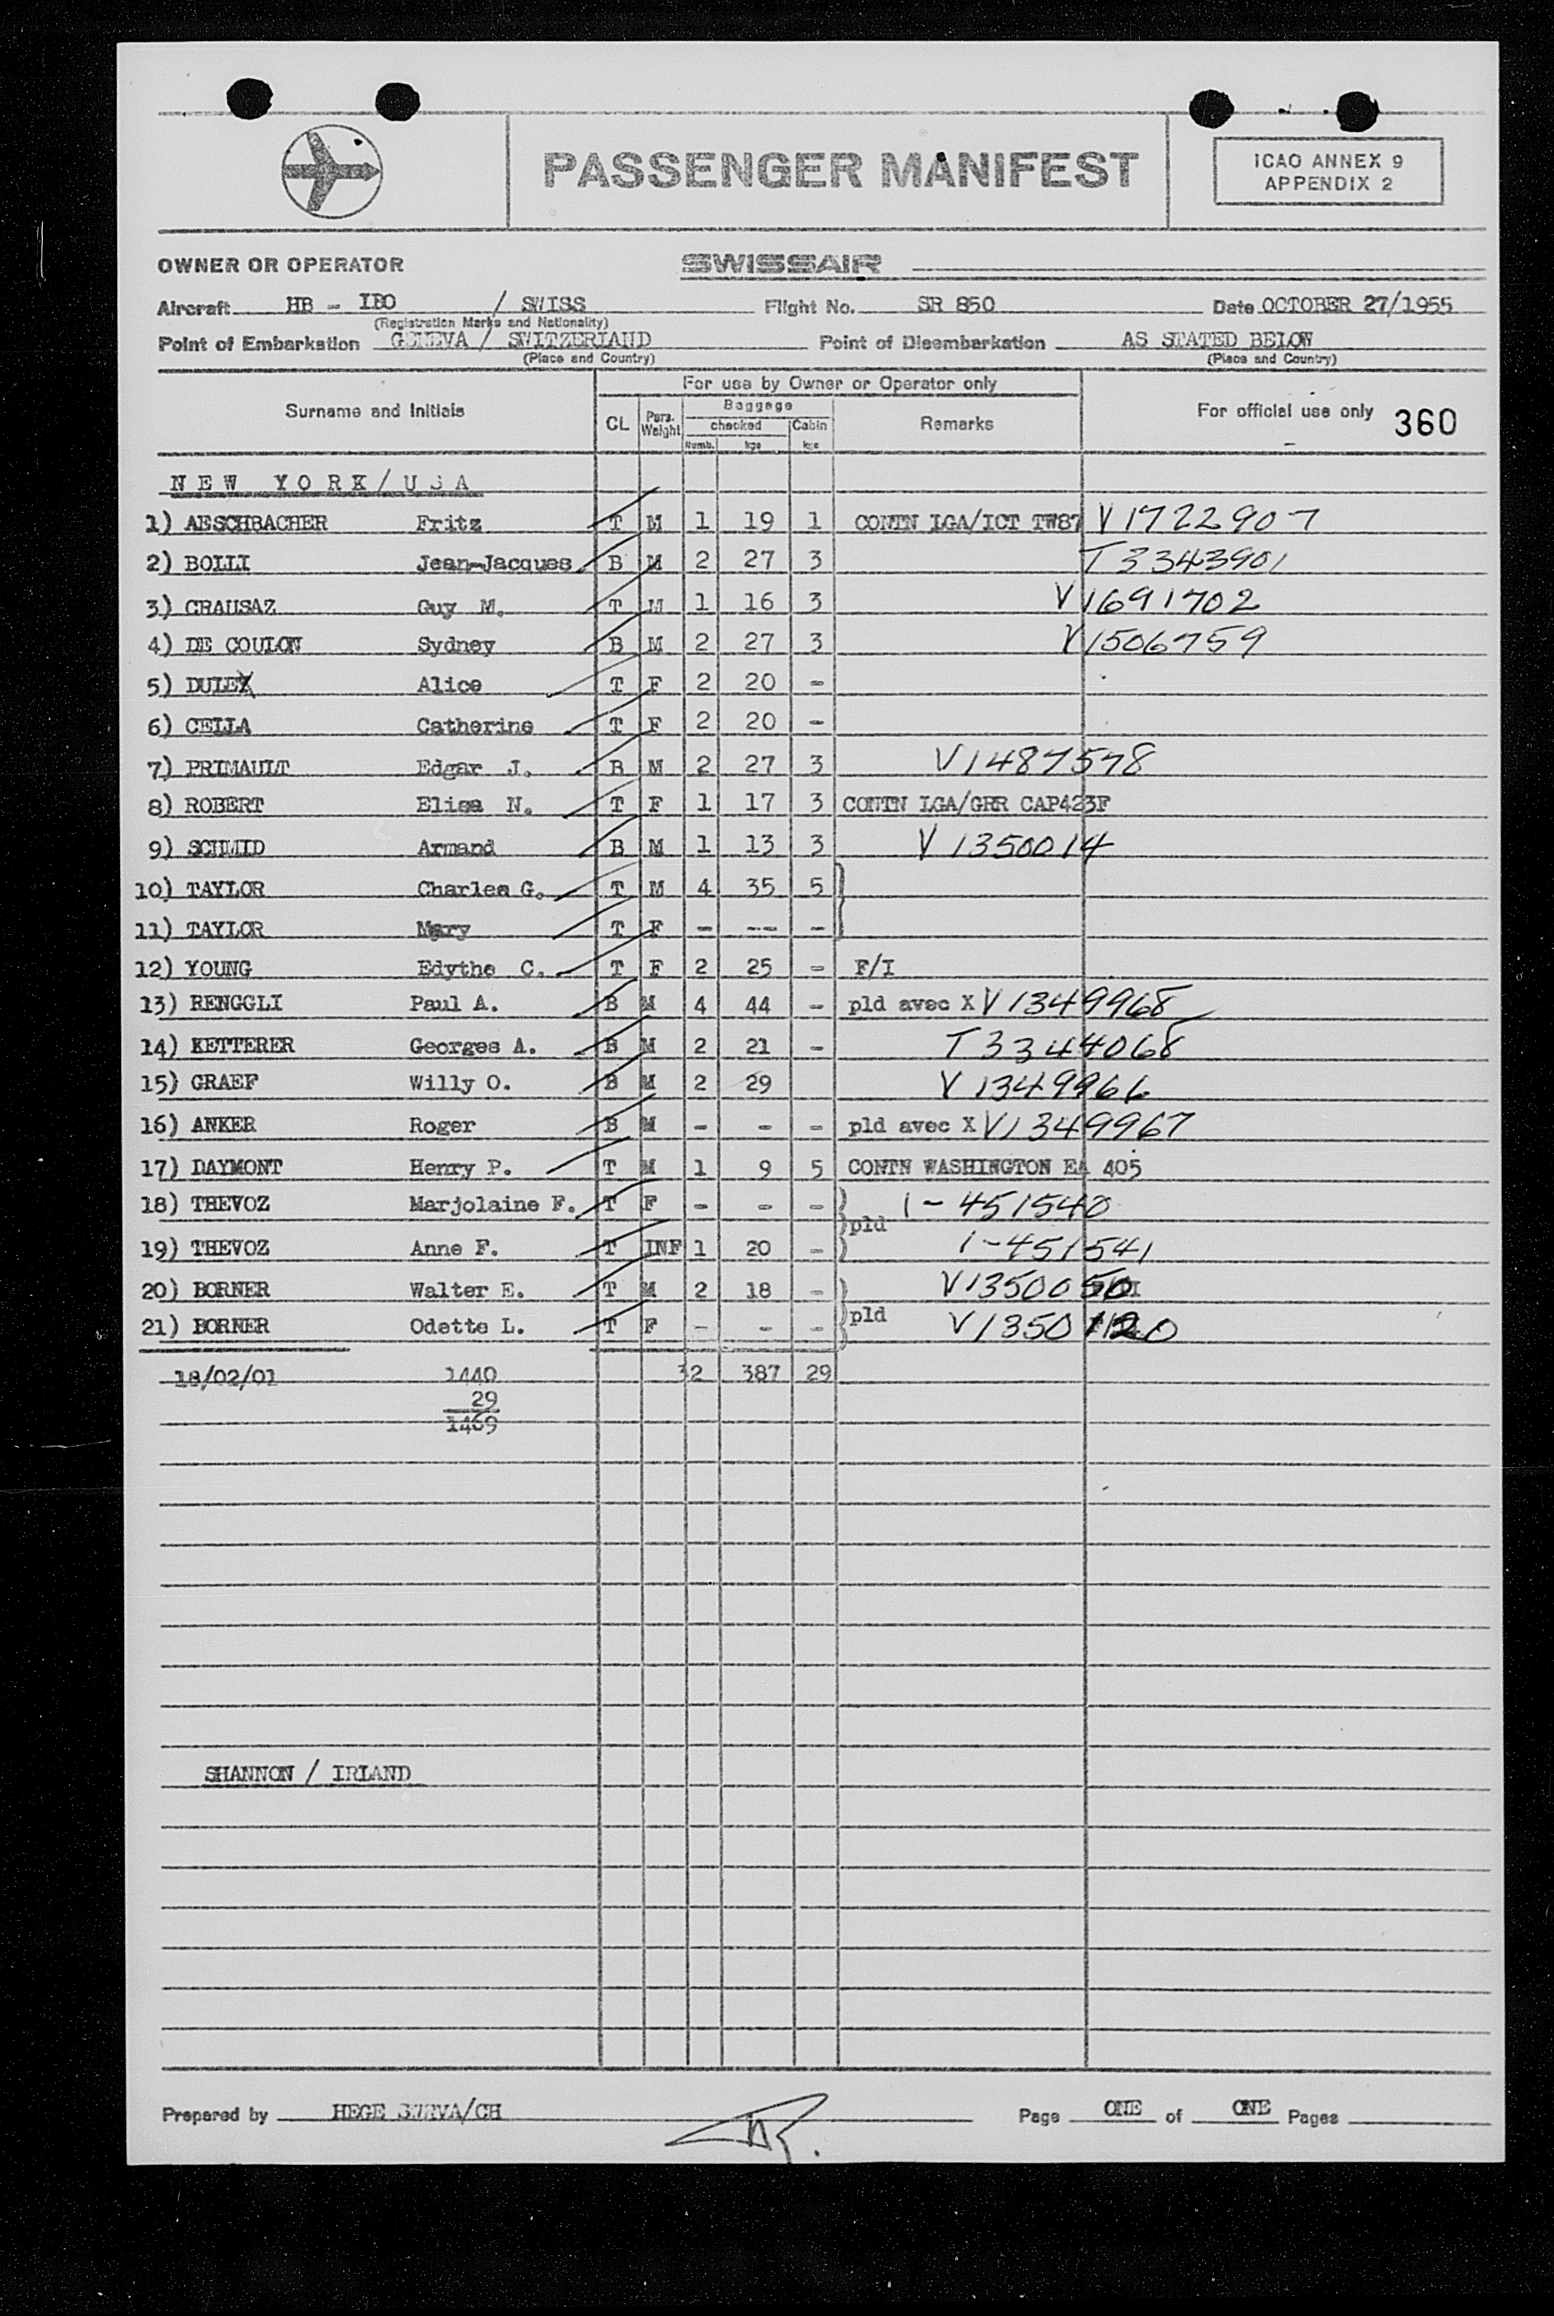 PASSENGER MANIFEST
ICAO ANNEX 9
APPENDIX 2
OWNER OR OPERATOR SWISSAIR
Aircraft HB - IBO / SWISS Flight No. SR 850 Date OCTOBER 27/1955
(Registration Marks and Nationality)
Point of Embarkation GENEVA / SWITZERLAND Point of Disembarkation AS STATED BELOW
(Place and Country) (Place and Country)
For use by Owner or Operator only
Surname and Initials CL Pers. Weight Baggage checked Numb. kgs Cabin kgs Remarks For official use only 360
NEW YORK/USA
1) AESCHBACHER Fritz T M 1 19 1 CONTN LGA/ICT TW87 V1722907
2) BOLLI Jean-Jacques B M 2 27 3 T3343901
3) CRAUSAZ Guy M. T M 1 16 3 V1691702
4) DE COULON Sydney B M 2 27 3 V1506759
5) DULEX Alice T F 2 20 -
6) CELLA Catherine T F 2 20 -
7) PRIMAULT Edgar J. B M 2 27 3 V1487578
8) ROBERT Elisa N. T F 1 17 3 CONTN LGA/GRR CAP423F
9) SCHMID Armand B M 1 13 3 V1350014
10) TAYLOR Charles G. T M 4 35 5
11) TAYLOR Mary T F - --- -
12) YOUNG Edythe C. T F 2 25 - F/I
13) RENGGLI Paul A. B M 4 44 - pld avec X V1349968
14) KETTERER Georges A. B M 2 21 - T3344068
15) GRAEF Willy O. B M 2 29 V1349966
16) ANKER Roger B M - - - pld avec X V1349967
17) DAYMONT Henry P. T M 1 9 5 CONTN WASHINGTON EA 405
18) THEVOZ Marjolaine F. T F - - - 1-451540
pld
19) THEVOZ Anne F. T INF 1 20 - 1-451541
20) BORNER Walter E. T M 2 18 - V1350050
pld
21) BORNER Odette L. T F - - - V1350120
18/02/01 1440 32 387 29
29
1469
SHANNON / IRLAND
Prepared by HEGE /CH Page ONE of ONE Pages